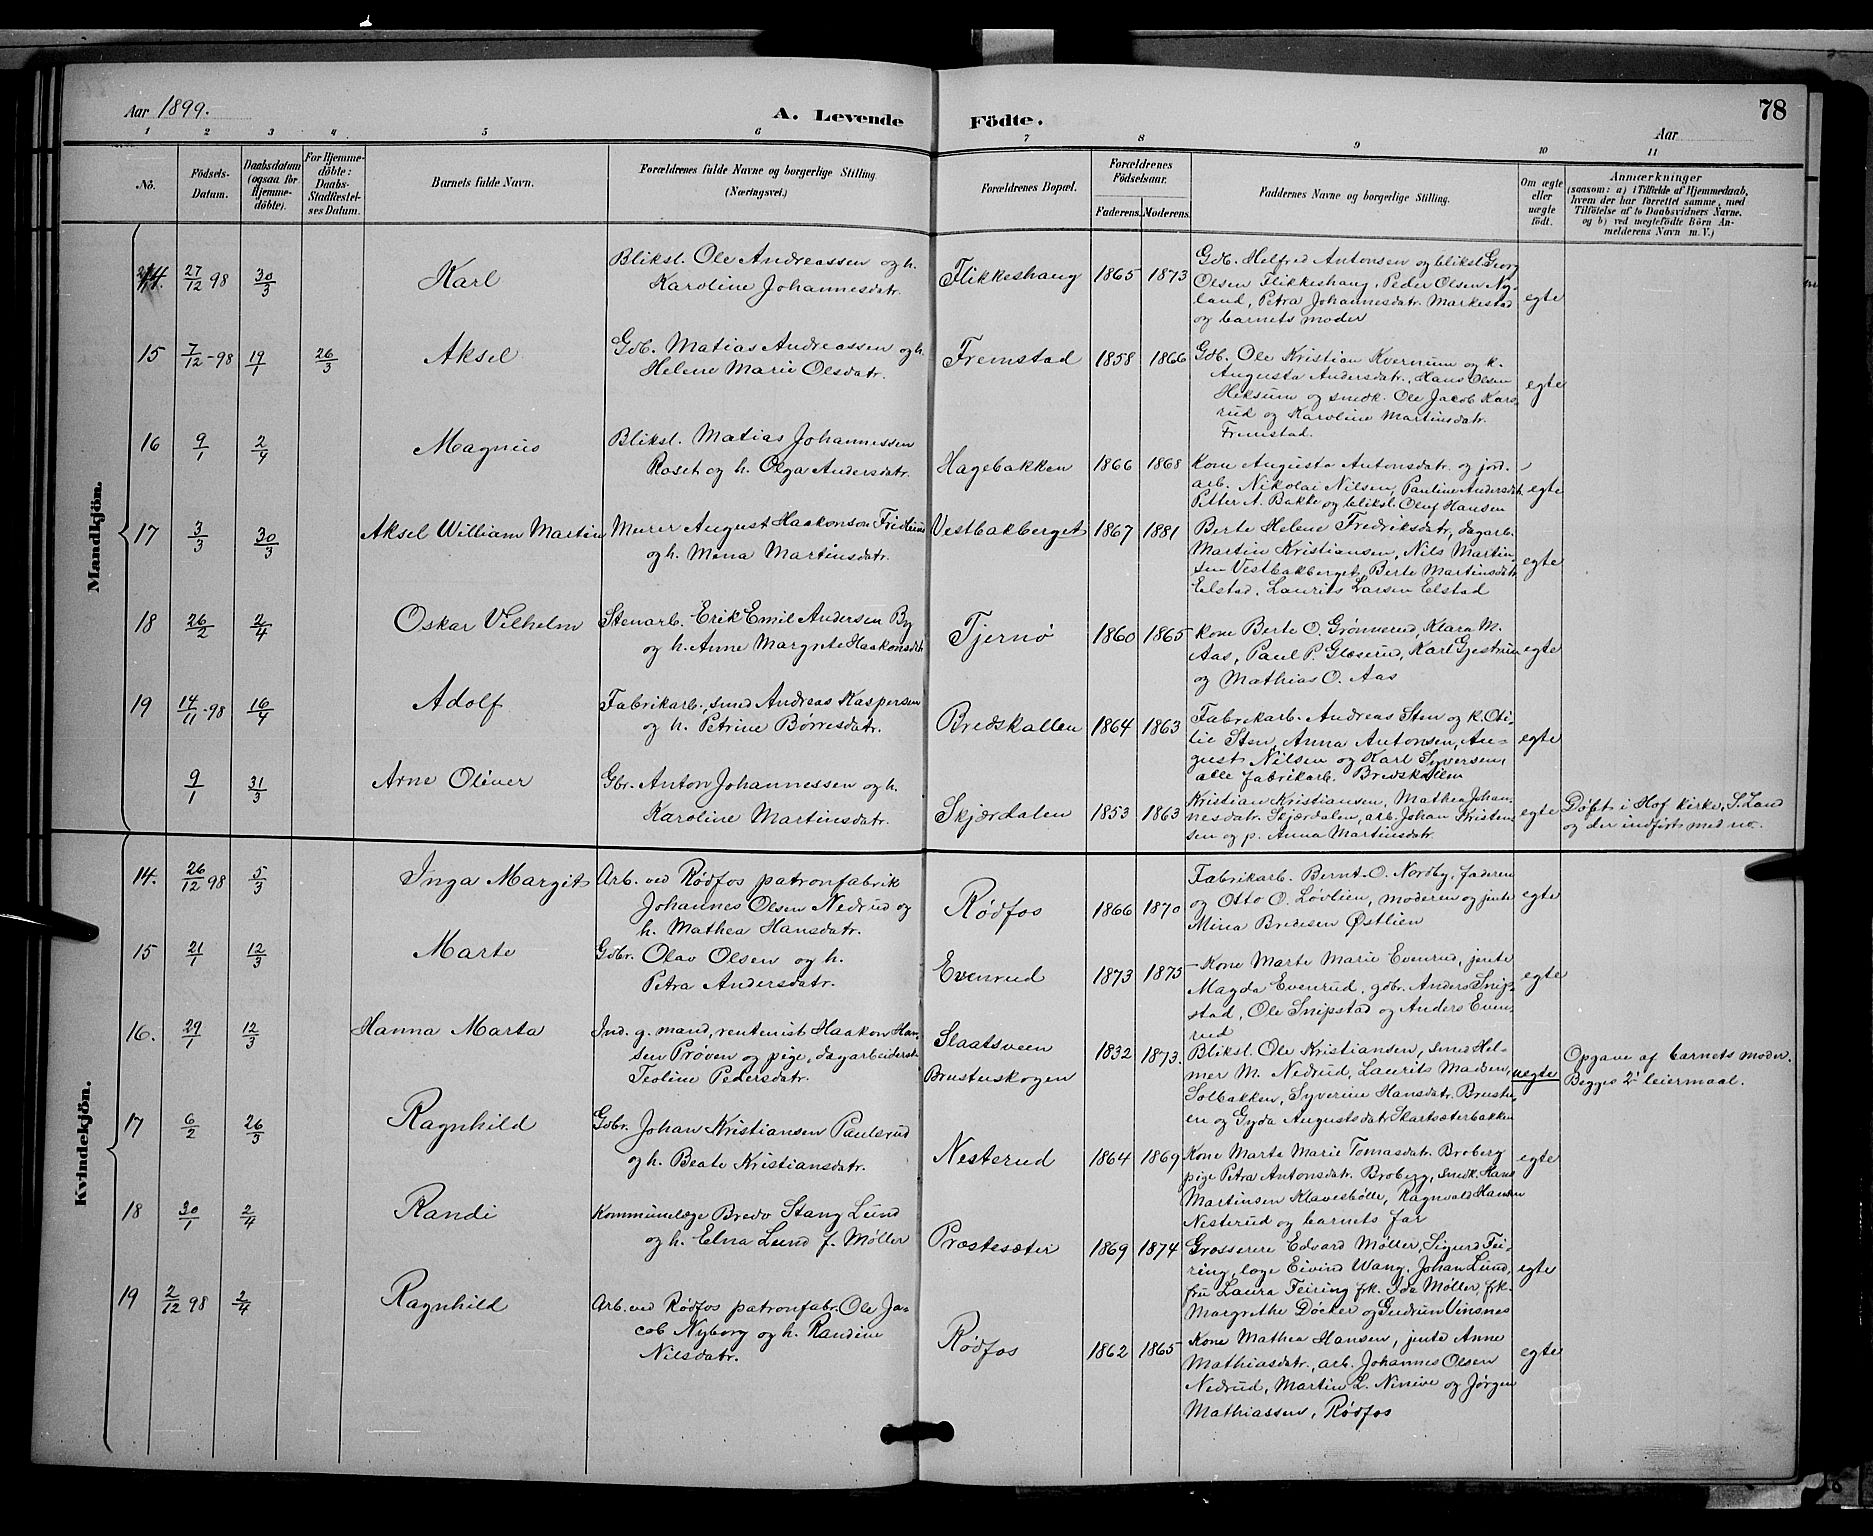 Aar 1899.
A. Levende Födte.
78
Aar
1 2 3 4 5 6 7 8 9 10 11
No.
Födsels-
Datum.
Daabsdatum
(ogsaa for
Hjemme-
döbte).
For Hjemme-
döbte:
Daabs-
Stadfæstel-
ses Datum.
Barnets fulde Navn.
Forældrenes fulde Navne og borgerlige Stilling.
(Næringsvei.)
Forældrenes Bopæl.
Forældrenes
Födselsaar.
Faderens. Moderens.
Faddernes Navne og borgerlige Stilling.
Om ægte
eller
uægte
födt.
Anmærkninger
(saasom: a) i Tilfælde af Hjemmedaab,
hvem der har forrettet samme, med
Tilföielse af to Daabsvidners Navne.
og b) ved uægtefödte Börn An-
melderens Navn m. V.)
Mandkjön.
14. 27/12 98 30/3 Karl
Bliksl. Ole Andreassen og h.
Karoline Johannesdatr.
Flikkeshaug 1865 1873
Gdb. Helfred Antonsen og bliksl. Georg
Olsen Flikkeshaug, Peder Olsen Ny-
land, Petra Johannesdatr. Markestad
og barnets moder
egte
15 7/12-98 19/1 26/3 Aksel
Gdb. Matias Andreassen og h.
Helene Marie Olsdatr.
Fremstad 1858 1866
Gdb. Ole Kristian Kvernum og k.
Augusta Andersdatr., Hans Olsen
Heksum og smedk. Ole Jacob Kars-
rud og Karoline Martinsdatr.
Fremstad.
egte
16 9/1 2/4 Magnus
Bliksl. Matias Johannessen
Roset og h. Olga Andersdatr.
Hagebakken 1866 1868
Kone Augusta Antonsdatr. og jord-
arb. Nikolai Nilsen, Pauline Andersdatr.
Petter A. Bakke og bliksl. Oluf Hansen
egte
17 3/3 30/3 Aksel William Martin
Murer August Haakonson Fridlund
og h. Mina Martinsdatr.
Vestbakberget 1867 1881
Berte Helene Fredriksdatr, dagarb.
Martin Kristiansen, Nils Martin-
sen Vestbakberget, Berte Martinsdatr.
Elstad, Laurits Larsen Elstad
egte
18 26/2 2/4 Oskar Vilhelm
Stenarb. Erik Emil Andersen By
og h. Anne Margrete Haakonsdatr.
Tjernø 1860 1865
Kone Berte O. Grønnerud, Klara M.
Aas, Paul P. Glæserud, Karl Gjestrum
og Mathias O. Aas
egte
19 14/11-98 16/4 Adolf
Fabrikarb., smed Andreas Kaspersen
og h. Petrine Børresdatr.
Bredskallen 1864 1863
Fabrikarb. Andreas Sten og k. Oti-
lie Sten, Anna Antonsen, Au-
gust Nilsen og Karl Syversen,
alle fabrikarb. Bredskallen
egte
9/1 31/3 Arne Oliver
Gbr. Anton Johannessen og h.
Karoline Martinsdatr.
Skjærdalen 1853 1863
Kristian Kristiansen, Mathea Johan-
nesdatr. Skjærdalen, arb. Johan Kristen-
sen og p. Anna Martinsdatr.
egte
Døbt i Hof kirke, S. Land
og der indført med no.
Kvindekjön.
14. 26/12 98 5/3 Inga Margit
Arb. ved Rødfos patronfabrik
Johannes Olsen Nedrud og
h. Mathea Hansdatr.
Rødfos 1866 1870
Fabrikarb. Bernt O. Nordby, faderen
og Otto O. Løvlien, moderen og jente
Mina Bredesen Østlien
egte
15 21/1 12/3 Marte
Gdbr. Olav Olsen og h.
Petra Andersdatr.
Evenrud 1873 1875
Kone Marte Marie Evenrud, jente
Magda Evenrud, gdbr. Anders Snip-
stad, Ole Snipstad og Anders Even-
rud
egte
16. 29/1 12/3 Hanna Marta
Ind. g. mand, rentenist Haakon Han-
sen Prøven og pige, dagarbeiderst.
Teoline Pedersdatr.
Slaatsveen
Brustuskogen
1832 1873.
Bliksl. Ole Kristiansen, smed Hel-
mer M. Nedrud, Laurits Madsen,
Solbakken, Syverine Hansdatr. Brustu-
en og Gyda Augustsdatr. Skartsæterbakken
uegte
Opgave af barnets moder.
Begges 2' leiermaal.
17 6/2 26/3 Ragnhild
Gdbr. Johan Kristiansen Paulsrud
og h. Beate Kristiansdatr.
Nesterud 1864 1869
Kone Marte Marie Tomasdatr. Broberg
pige Petra Antonsdatr. Broberg, smedk. Hans
Martinsen Klavesbølle, Ragnvald Hansen
Nesterud og barnets far
egte
18 30/1 2/4 Randi
Kommunelæge Bredo Stang Lund
og h. Elna Lund f. Møller
Præstesæter 1869 1874
Grosserere Edvard Møller, Sigurd Fei-
ring, læge Eivind Wang, Johan Lund,
fru Laura Feiring frk. Ida Møller, frk.
Margrethe Döcker og Gudrun Vinsnes
egte
19 2/12 98 2/4 Ragnhild
Arb. ved Rødfos patronfabr. Ole Ja-
cob Nyborg og h. Randine
Nilsdatr.
Rødfos 1862 1865
Kone Mathea Hansen, jente Anne
Mathiasdatr., arb. Johannes Olsen
Nedrud, Martin L. Ninive og Jørgen
Mathiassen, Rødfos
egte